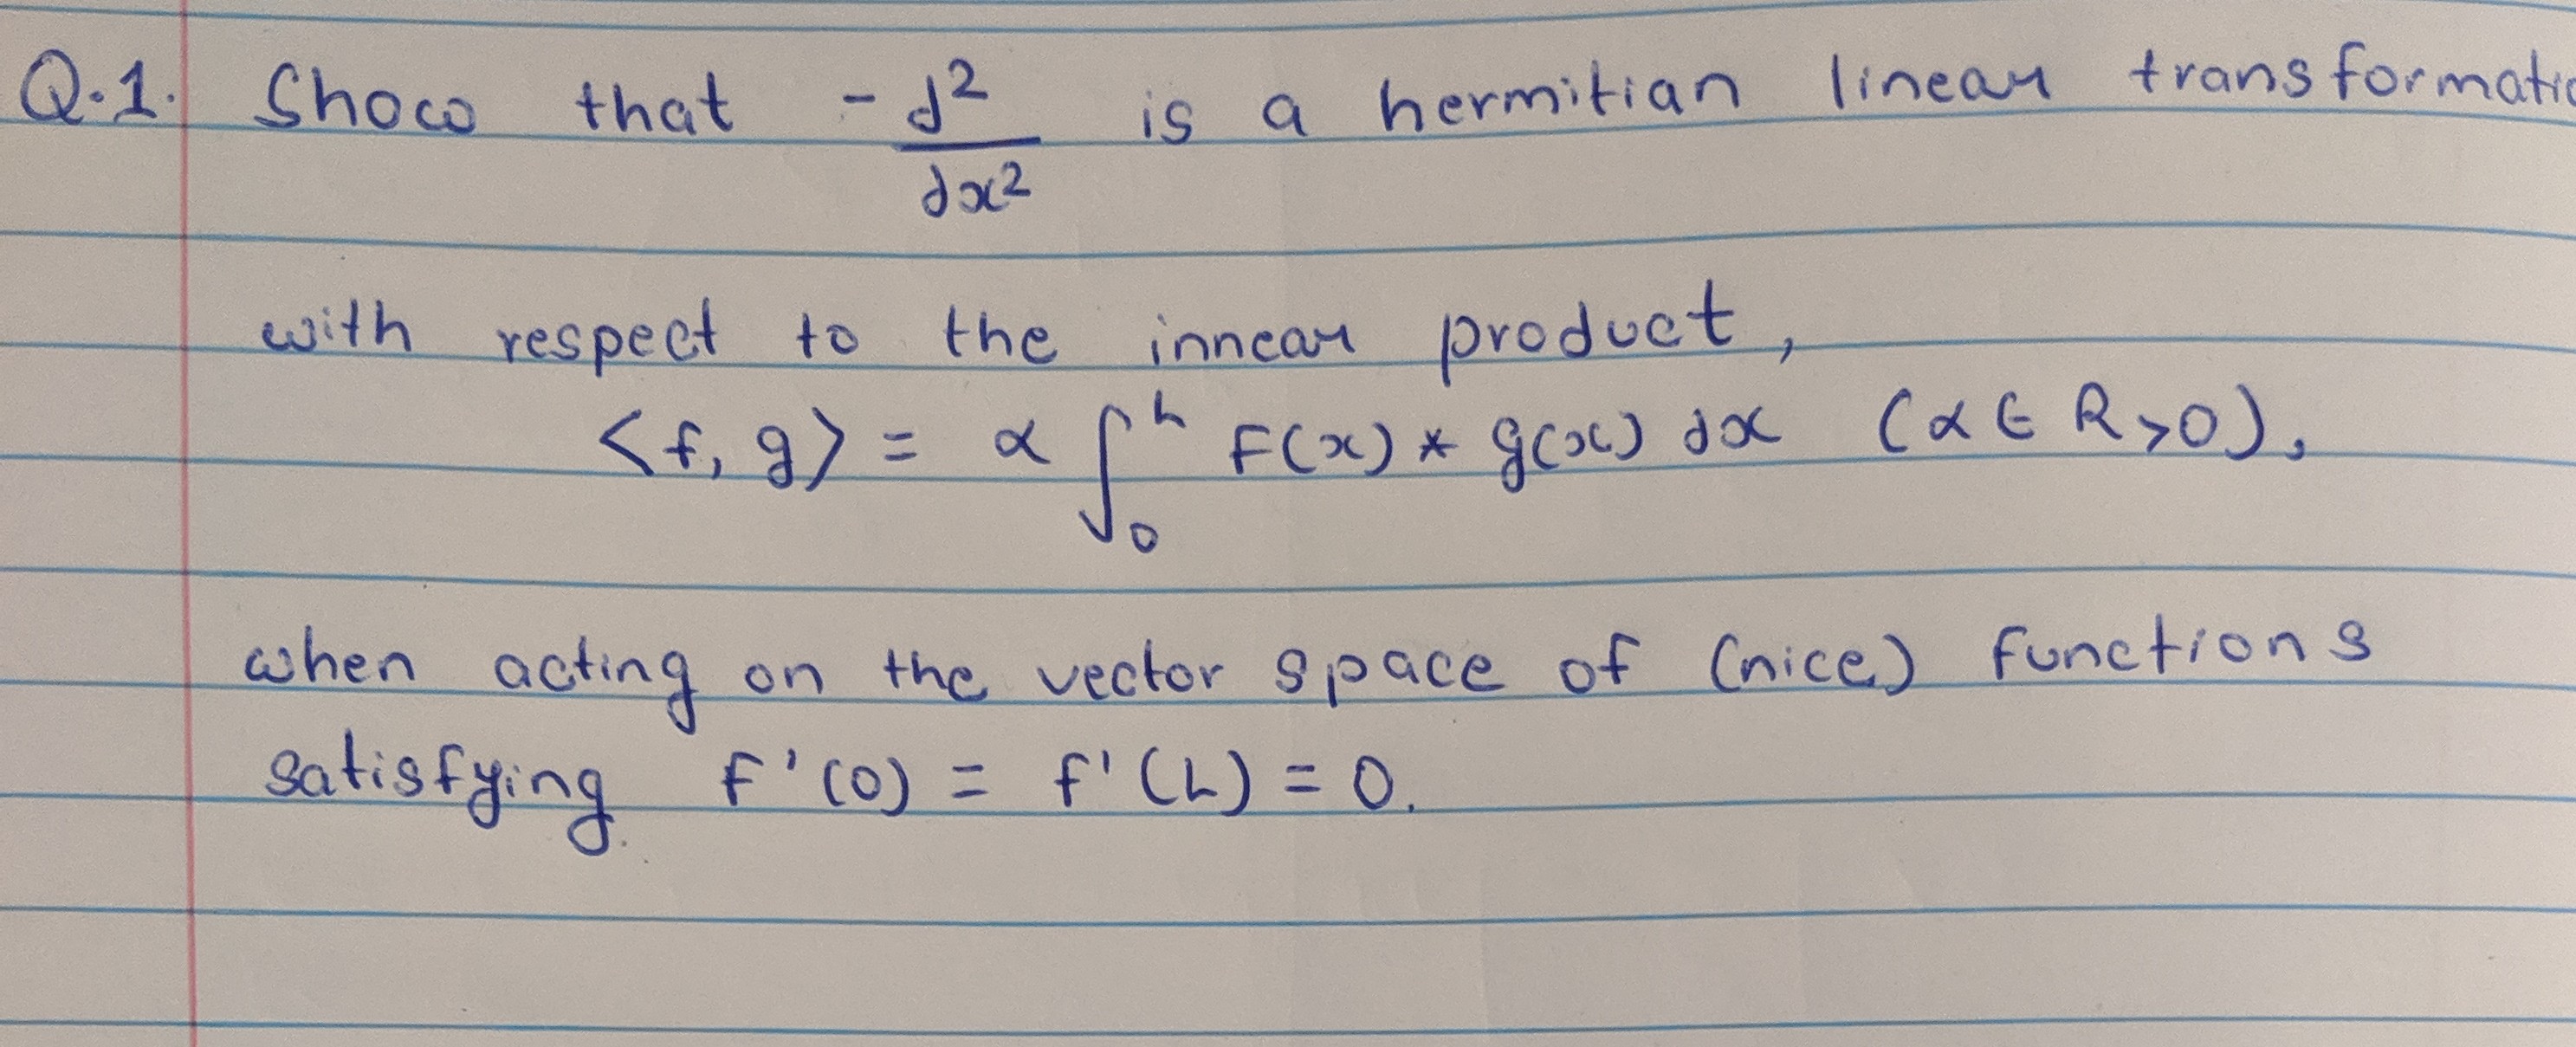 Q.1. Show that - d²/dx² is a hermitian linear transformatio
with respect to the innear product,
<f, g> = α ∫₀ᴸ F(x) * g(x) dx (α ∈ R>0),
when acting on the vector space of (nice) functions
satisfying F'(0) = f'(L) = 0.